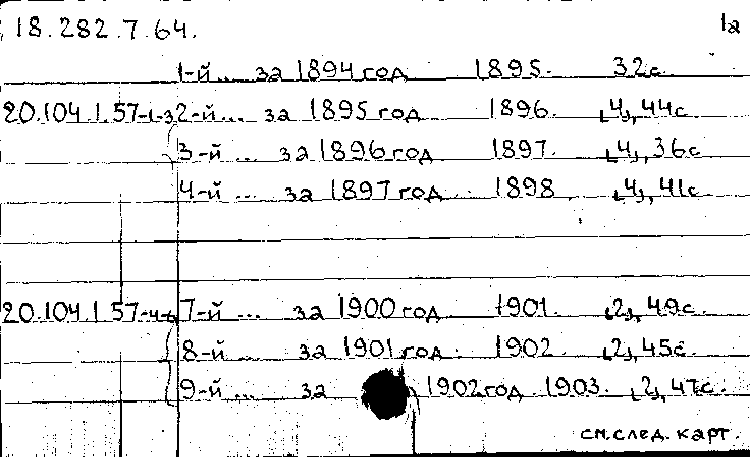 18.282.7.64. 1а
1-й ... за 1894 год 1895. 32с.
20.104.1.57-1-3 2-й ... за 1895 год 1896. [4], 44с
3-й ... за 1896 год 1897. [4], 36с
4-й ... за 1897 год 1898 [4], 41с.
20.104.1.57-4-6 7-й ... за 1900 год 1901. [2], 49с.
8-й ... за 1901 год. 1902. [2], 45с.
9-й ... за 1902 год 1903. [2], 47с.
см. след. карт.